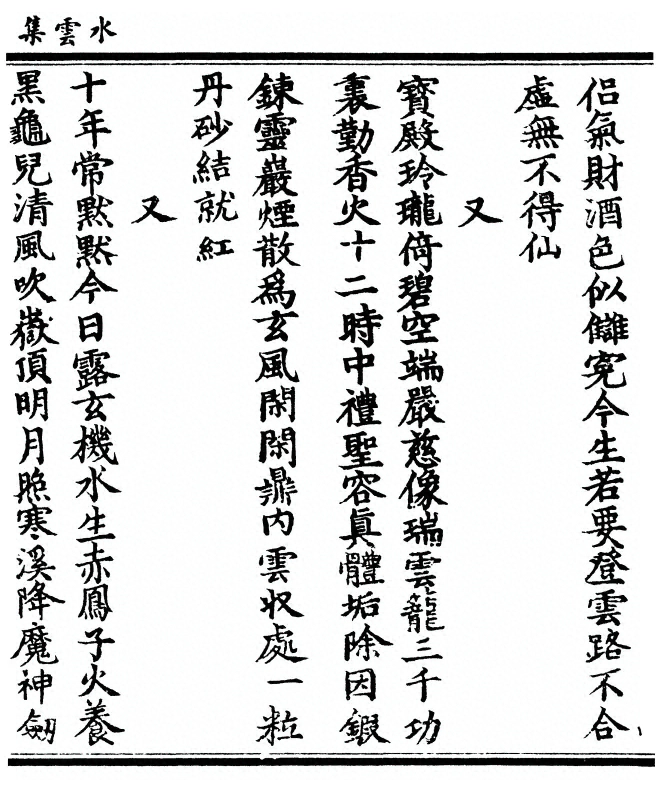 水雲集
侣氣財酒色似讎寃今生若要登雲路不合
虛無不得仙
又
寶殿玲瓏倚碧空端嚴慈像瑞雲籠三千功
裏勤香火十二時中禮聖容眞體垢除因鍜
鍊靈巖煙散爲玄風閑閑鼎内雲收處一粒
丹砂結就紅
又
十年常默默今日露玄機水生赤鳳子火養
黑龜兒清風吹嶽頂明月照寒溪降魔神劒